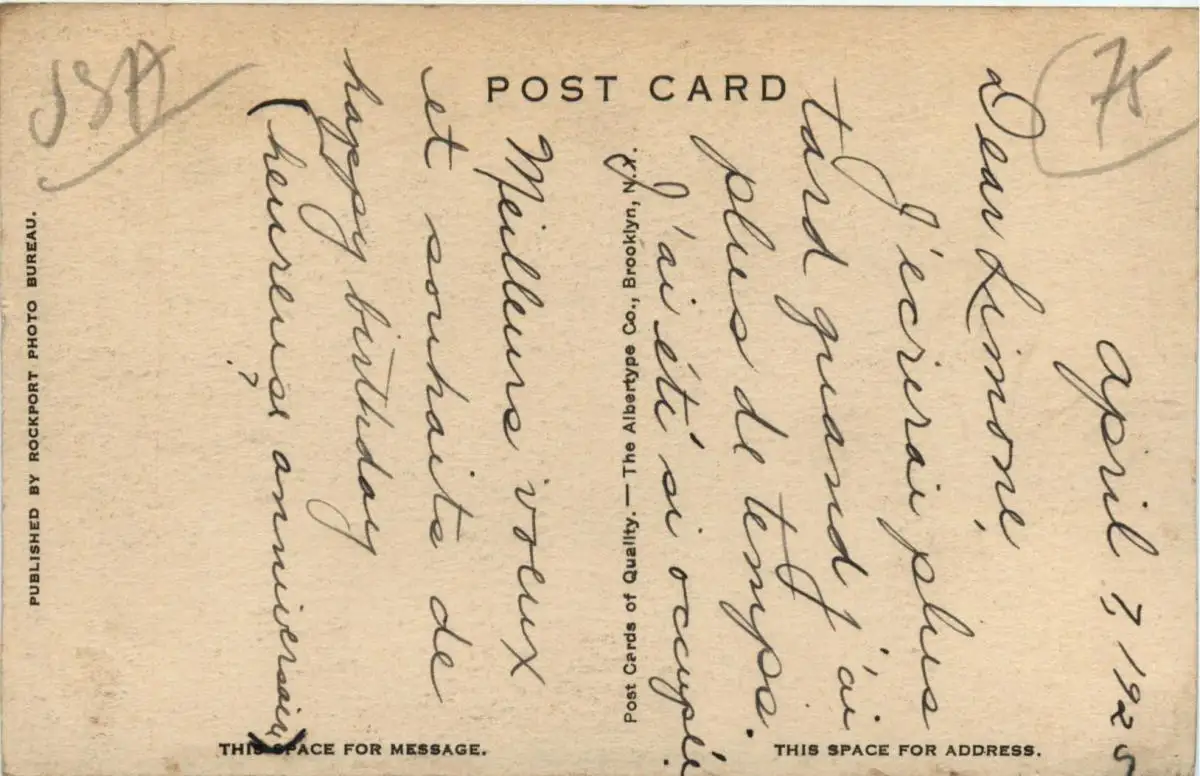 POST CARD
April 7, 1925
Dear Simone,
J'écrirai plus
tard quand j'ai
plus de temps.
J'ai été si occupée.
Meilleurs voeux
et souhaits de
happy birthday
(heureuse anniversaire)
?
75
PUBLISHED BY ROCKPORT PHOTO BUREAU.
Post Cards of Quality. — The Albertype Co., Brooklyn, N.Y.
THIS SPACE FOR MESSAGE.
THIS SPACE FOR ADDRESS.